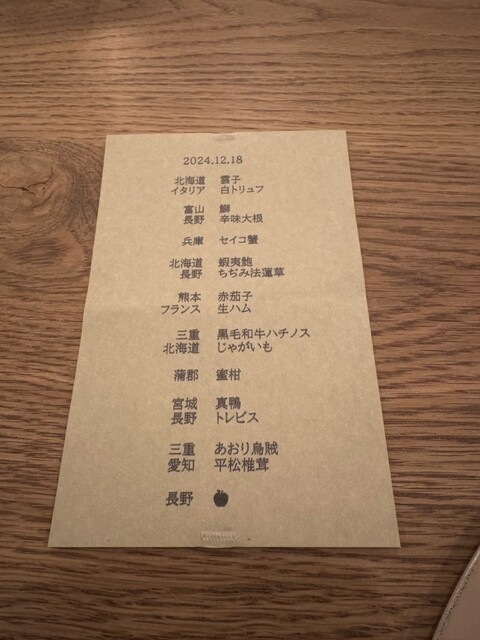 2024.12.18
北海道 雲子
イタリア 白トリュフ
富山 鰤
長野 辛味大根
兵庫 セイコ蟹
北海道 蝦夷鮑
長野 ちぢみ法蓮草
熊本 赤茄子
フランス 生ハム
三重 黒毛和牛ハチノス
北海道 じゃがいも
蒲郡 蜜柑
宮城 真鴨
長野 トレビス
三重 あおり烏賊
愛知 平松椎茸
長野